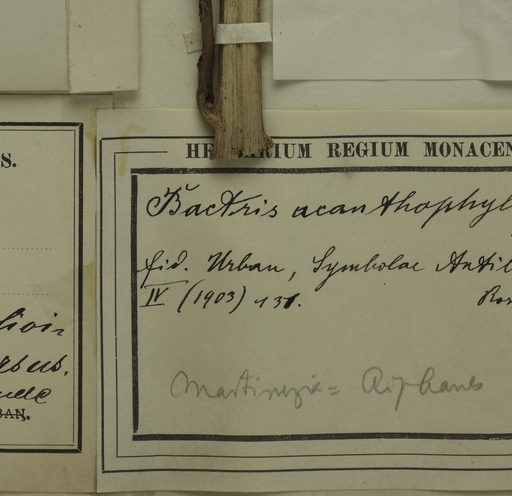 S.
lioi-
rsus.
BAN.
HERBARIUM REGIUM MONACEN
Bactris acanthophyl
fid. Urban, Symbolae Antil
IV (1903) p 131.
Ros
Martinezia = Aiphanes